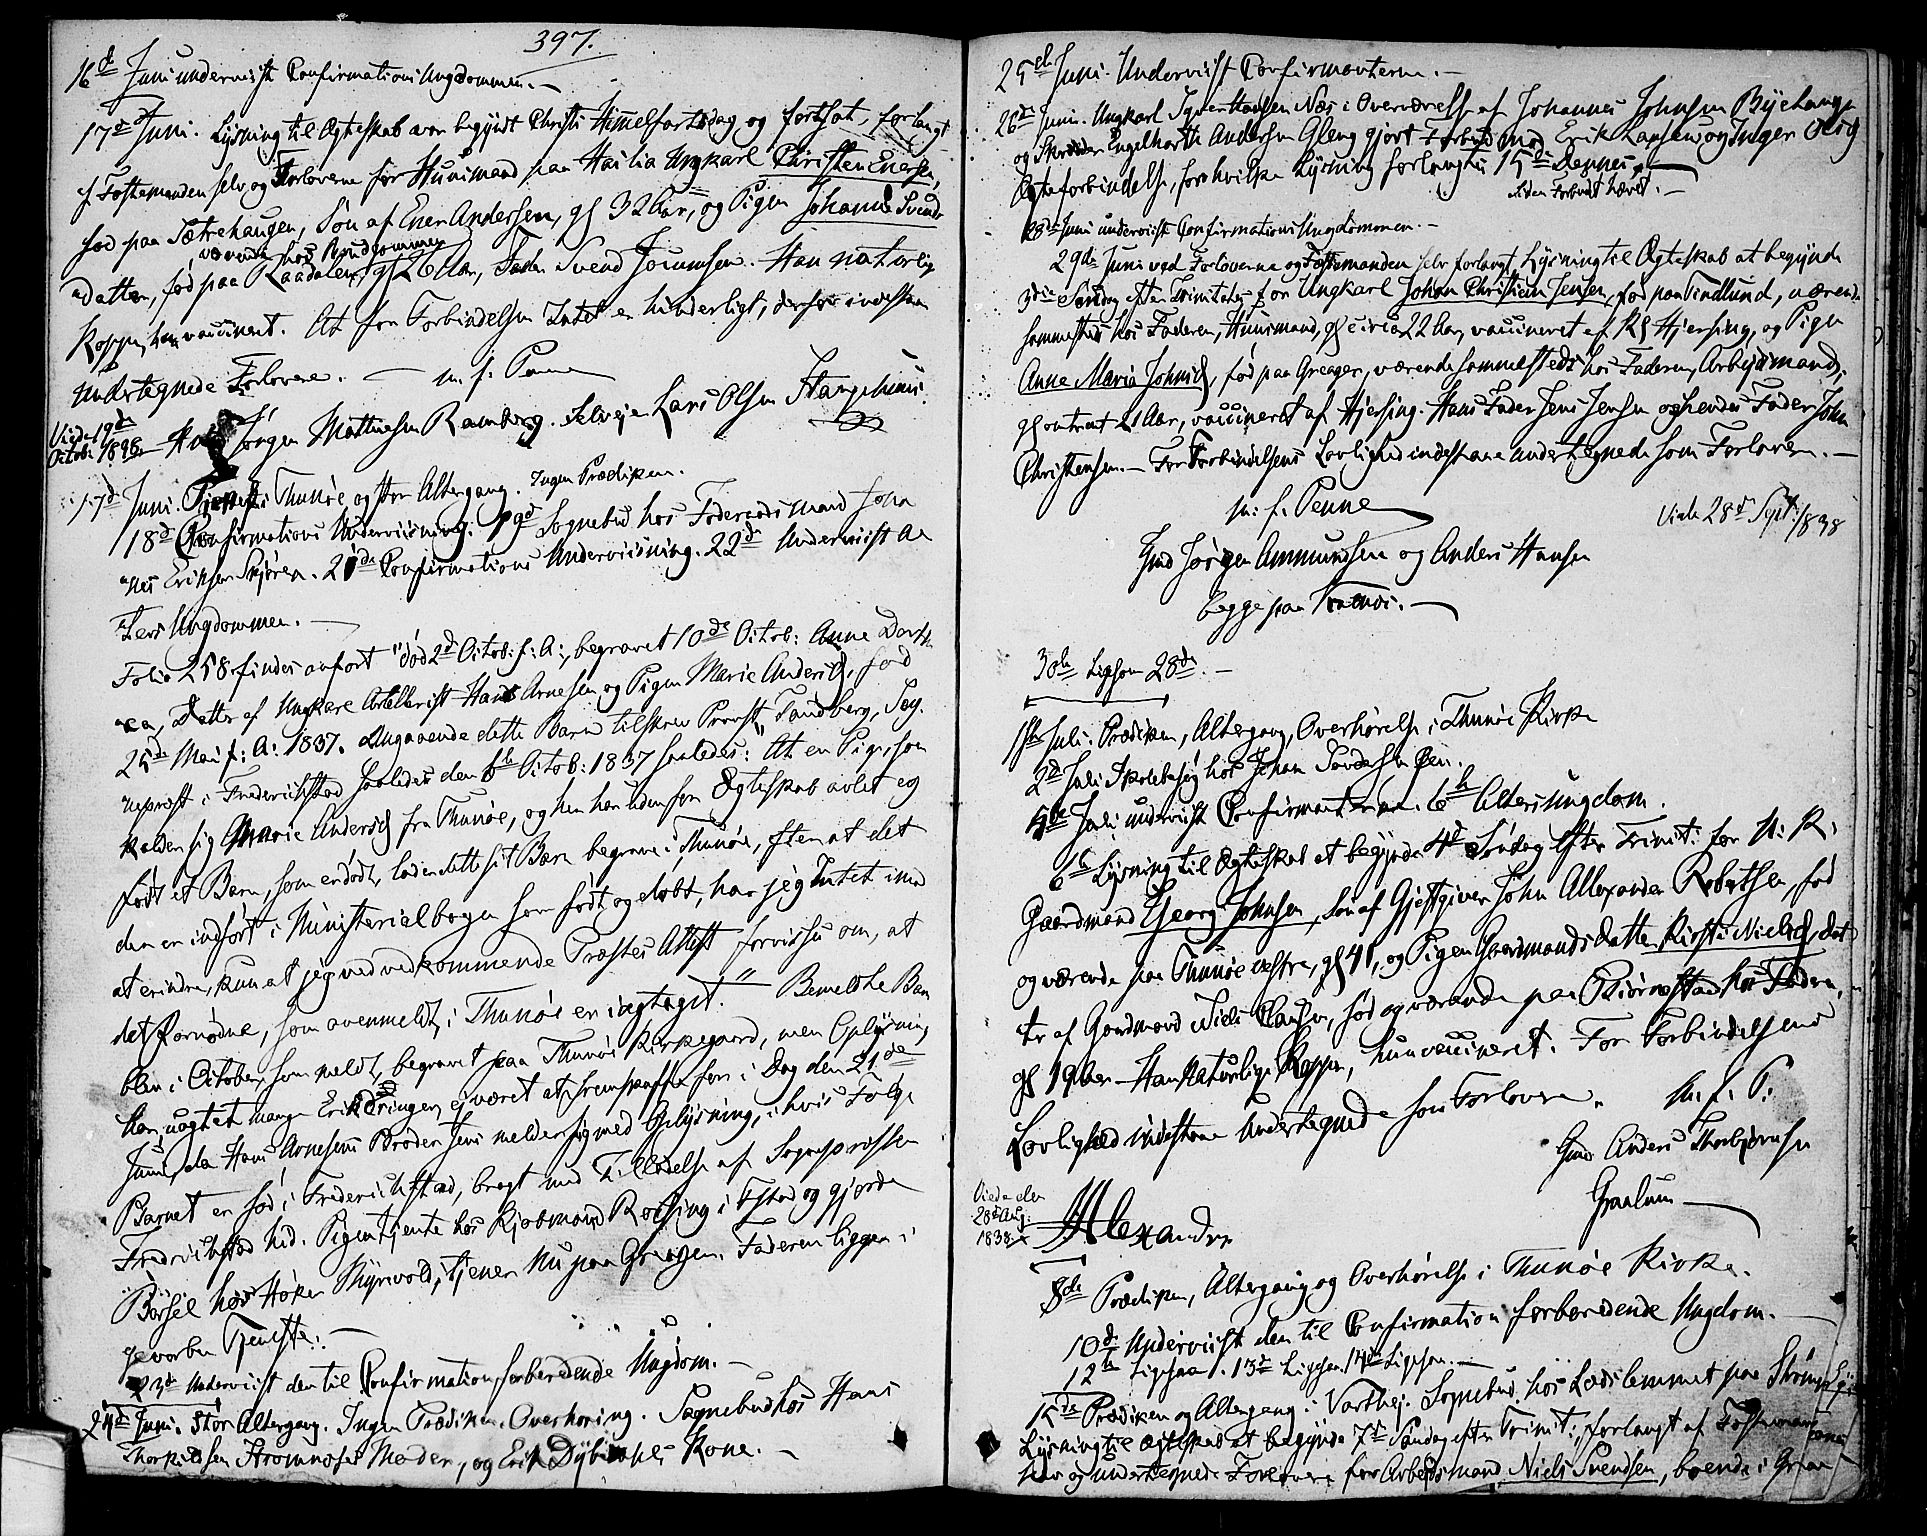 397.
16d Juni underviist Confirmations Ungdommen. —
17d Juni. Lysning til Ægteskab var begyndt Christi Himmelfartsdag og fortsat, forlangt
af Fæstemanden selv og Forloverne for Huusmand paa Hauslia Ungkarl Christen Enersen,
fød paa Sætrehaugen, Søn af Ener Andersen, gl 32 Aar, og Pigen Johanne Svends
værende hos Brudgommen
Datter, fød paa Raadalen, gl 26 Aar, Fader Svend Joennsen. Han naturlige
Kopper, hun vaccineret. At for Forbindelsen Intet er hinderligt, derfor indestaae
undertegnede Forlovere. — m. f. Penne
Viede 19d
Octob: 1838
Jørgen Mathiesen Ramberg. Selveier Lars Olsen Hauge
17d Juni. Thunøe og stor Altergang. Ingen Prædiken.
18d Confirmations Underviisning. 19d Sognebud hos Føderaadsmand Joha
nes Eriksen Skjøren. 21de Confirmations Underviisning. 22d Underviist Al
ters Ungdommen. —
Folio 258 findes anført "død 2d Octob: f: A:, begravet 10de Octob: Anne Dorth
ea, Datter af Ungkarl Artillerist Hans Arnesen og Pigen Marie Andersd, fød
25de Mai f: A: 1837. Angaaende dette Barn tilskrev Provst Tandberg, Sog
neprest i Frederichstad saaledes den 6te Octob: 1837 saaledes: "At en Pige, som
kalder sig Marie Andersd fra Thunøe, og her har udenfor Ægteskab avlet og
født et Barn, som er dødt, lader dette sit Barn begrave i Thunøe, efterat det
den er indført i Ministerialbogen som født og døbt, har jeg Intet imod
at erindre, kun at jeg ved vedkommende Præstes Attest forvisses om, at
det fornødne, som anmeldt, i Thunøe er iagtaget." Bemeldte Barn
blev i October, som meldt, begravet paa Thunøe Kirkegaard, men Oplysning
har uagtet mange Erindringer, ej været at fremskaffe før i Dag den 21de
Juni, da Hans Arnesens Broder Jens melder sig med Oplysning, i hvis Følge
Barnet er fød i Frederichstad, bragt med Tilladelse af Sognepræsten
Fredrichstad hid. Pigen tjente hos Kjøbmand Røsing i Fstad og gjorde
Barsel hos Høker Myrvold, tjener nu paa Greager. Faderen ligger i
gevorben Tjeneste: —
23d Underviist den til Confirmation forberedende Ungdom. —
24d Juni. Stor Altergang. Ingen Prædiken. Overhøring. Sognebud hos Hans
Thorkildsen Strømnæses Moder, og Erik Kone. —
25de Juni. Underviist Confirmanterne. —
26de Juni. Ungkarl Hansen Næs i Overværelse af Johannes Johnsen Byehauge
og Skrædder Engelharth Andersen Gleng gjort Forbud mod Erik Larsens og Inger Olsd
Ægteforbindelse, for hvilke Lysning forlangtes 15de Dennes. —
Siden Forbudet hævet. —
28de Juni underviist Confirmations Ungdommen. —
29de Juni ved Forloverne og Fæstemanden selv forlangt Lysning til Ægteskab at begynde
3die Søndag efter Trinitatis for Ungkarl Johan Christian Jensen, fød paa Tindlund, værende
sammesteds hos Faderen, Huusmand, gl circa 22 Aar, vaccineret af Kl Hjersing, og Pigen
Anne Maria Johnsd, fød paa Greager, værende sammesteds hos Faderen, Arbejdsmand,
gl omtrent 21 Aar, vaccineret af Hjersing. Hans Fader Jens Jensen og hendes Fader John
Christensen. — For Forbindelsens Lovlighed indestaae undertegnede som Forlovere. —
m. f. Penne
Viede 28d Sept: 1838
Gmd Jørgen Ammundsen og Anders Hansen
begge paa —
30te Ligson 28de. —
1ste Juli. Prædiken, Altergang, Overhørelse i Thunøe Kirke
2d Juli Skolebesøg hos Johan
5te Juli underviist Confirmanterne. 6te Alters Ungdom.
6te Lysning til Ægteskab at begynde 4d Søndag efter Trinit: for U: K:
Gaardmand Georg Johnsen, Søn af Gjestgiver John Allexander Robertsen, fød
og værende paa Thunøe vestre, gl 41, og Pigen Gaardmandsdatter Kirsti Nielsd, Dat
ter af Gaardmand Niels Clausen, fød og værende paa Biørnstad hos Faderen,
gl 19 Aar. Han Naturlige Kopper, hun vaccineret. For Forbindelsens
Lovlighed indestaae undertegnede som Forlovere. m. f. P:
Gmd Anders Thorbjørnsen
Graalum —
Viede den
28d Aug:
1838
Alexander
8de Prædiken, Altergang og Overhørelse i Thunøe Kirke.
10de Underviist den til Confirmation forberedende Ungdom. —
12te Ligson. 13de Ligson. 14de Ligson. —
15de Prædiken og Altergang i Varteig. Sognebud hos Lægdslemmet paa
Lysning til Ægteskab at begynde 7d Søndag efter Trinit:, forlangt af Fæstemanden
selv og undertegnede Forlovere for Arbejdsmand Niels Svendsen, boende i